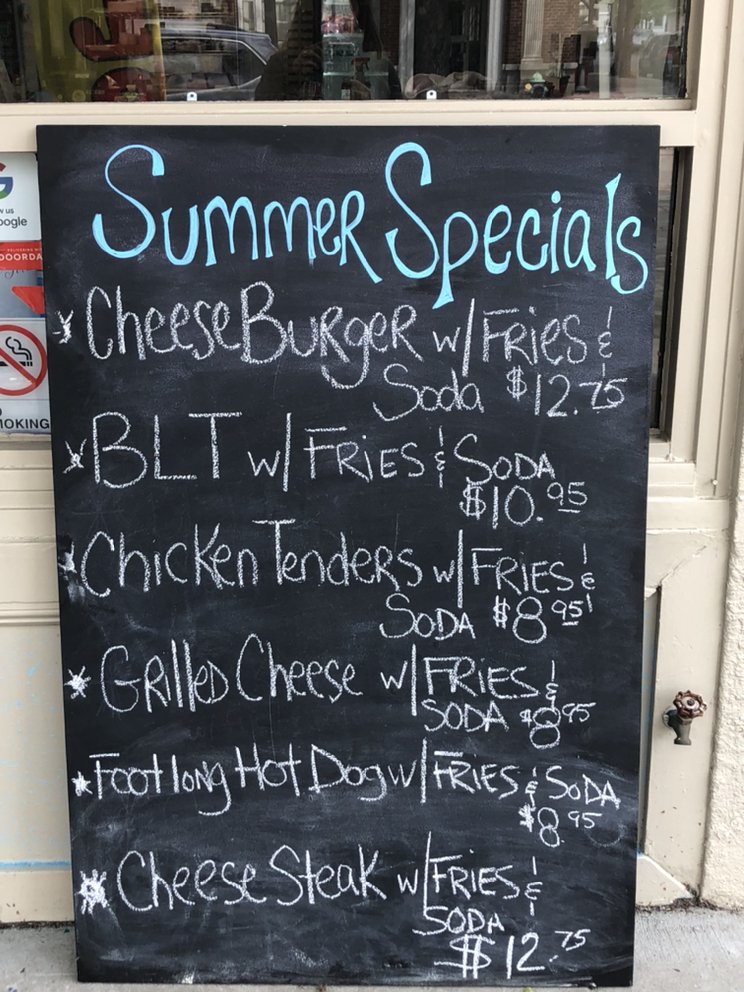 Summer Specials
* CheeseBurger w/ Fries &
Soda $12.75
* BLT w/ FRiES & SODA
$10.95
* Chicken Tenders w/ FRiES &
SODA $8.95
* GRilled Cheese w/ FRiES &
SODA $8.95
* Footlong Hot Dog w/ FRiES & SODA
$8.95
* Cheese Steak w/ FRiES &
SODA
$12.75
oogle
DOORDA
MOKING